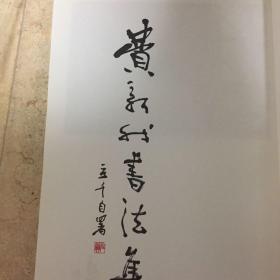 費新我書法集
立千自署